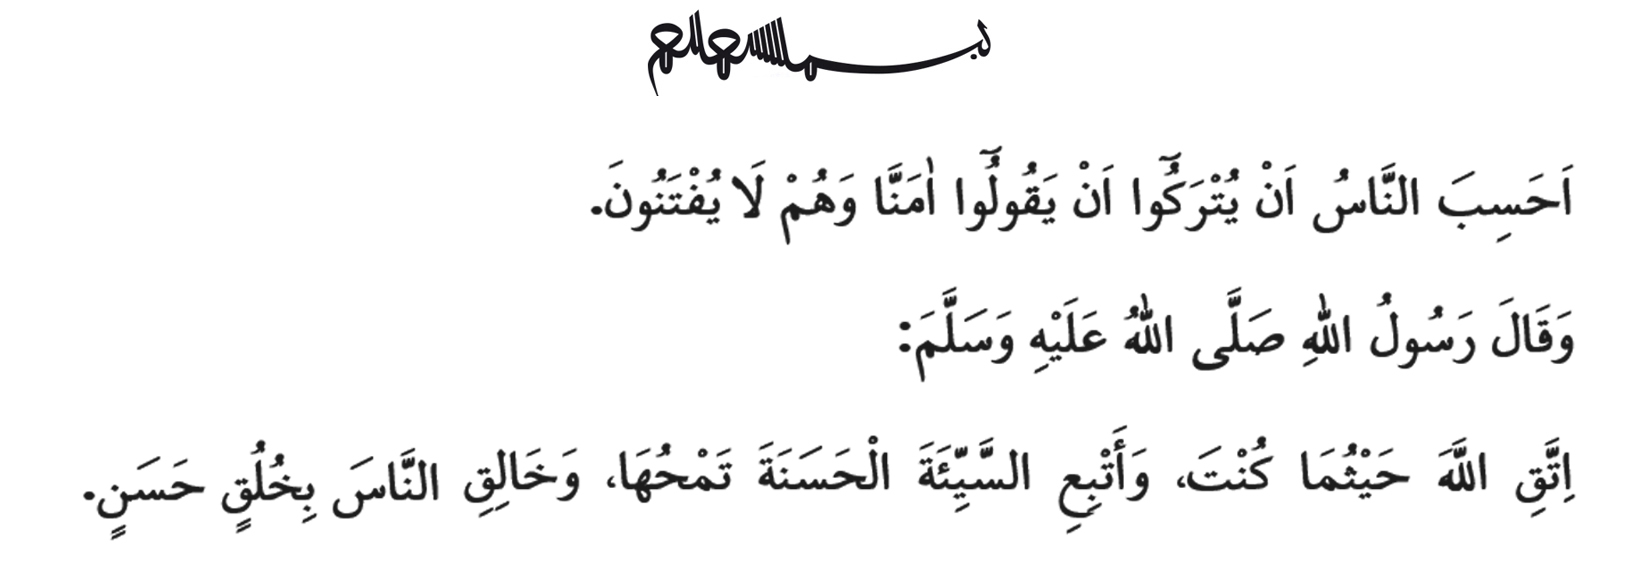 بسم الله الرحمن الرحيم
اَحَسِبَ النَّاسُ اَنْ يُتْرَكُٓوا اَنْ يَقُولُٓوا اٰمَنَّا وَهُمْ لَا يُفْتَنُونَ.
وَقَالَ رَسُولُ اللّٰهِ صَلَّى اللّٰهُ عَلَيْهِ وَسَلَّمَ:
اِتَّقِ اللَّهَ حَيْثُمَا كُنْتَ، وَأَتْبِعِ السَّيِّئَةَ الْحَسَنَةَ تَمْحُهَا، وَخَالِقِ النَّاسَ بِخُلُقٍ حَسَنٍ.